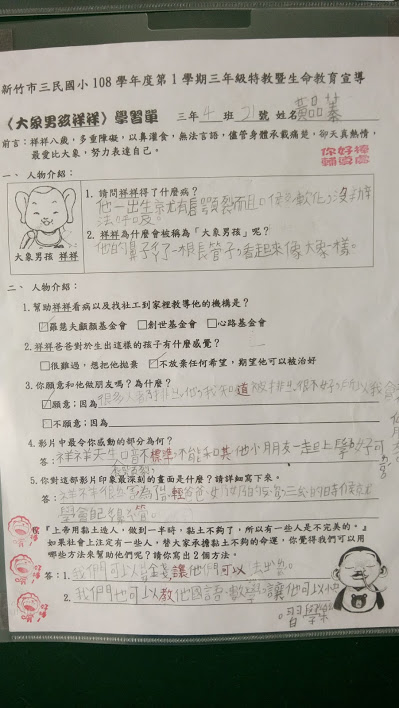 新竹市三民國小108學年度第1學期三年級特教暨生命教育宣導
〈大象男孩祥祥〉學習單 三年4班21號 姓名黃品蓁
前言：祥祥八歲，多重障礙，以鼻灌食，無法言語，儘管身體承載痛楚，卻天真熱情，
最愛比大象，努力表達自己。
你好棒
輔導處
一、人物介紹：
大象男孩 祥祥
1. 請問祥祥得了什麼病？
他一出生就有長顎裂而且
法呼吸。
2. 祥祥為什麼會被稱為「大象男孩」呢？
他的鼻子多了一根長管子，看起來像大象一樣。
二、人物介紹：
1. 幫助祥祥看病以及找社工到家裡教導他的機構是？
☑羅慧夫顱顏基金會 □創世基金會 □心路基金會
2. 祥祥爸爸對於生出這樣的孩子有什麼感覺？
□很難過，想把他拋棄 ☑不放棄任何希望，期望他可以被治好
3. 你願意和他做朋友嗎？為什麼？
☑願意；因為很多人都排出他，我知道被排出很不好
□不願意；因為
4. 影片中最令你感動的部分為何？
答：祥祥天生口部不標準，不能和其他小朋友一起上學
5. 你對這部影片印象最深刻的畫面是什麼？請詳細寫下來。
答：祥祥很
學會
『上帝用黏土造人，做到一半時，黏土不夠了，所以有一些人是不完美的。』
如果社會上注定有一些人，替大家承擔黏土不夠的命運，你覺得我們可以用
哪些方法來幫助他們呢？請你寫出2個方法。
答：1. 我們可以捐金錢，讓他們可以
2. 我們也可以教他國語、數學，讓他可以
學習